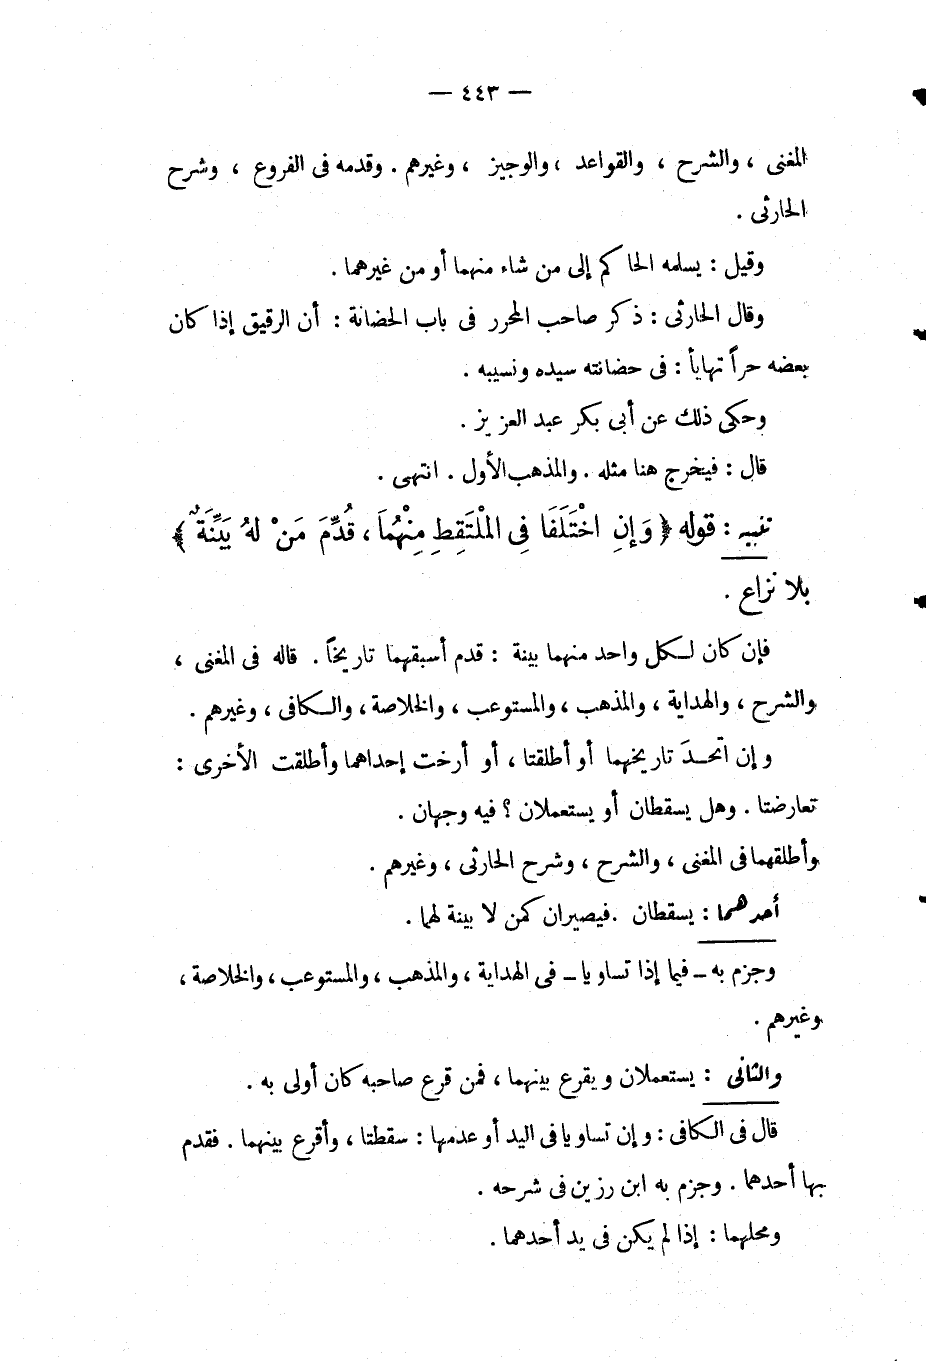 — ٤٤٣ —
المغنى ، والشرح ، والقواعد ، والوجيز ، وغيرهم . وقدمه فى الفروع ، وشرح
الحارثى .
وقيل : يسلمه الحاكم إلى من شاء منهما أو من غيرهما .
وقال الحارثى : ذكر صاحب المحرر فى باب الحضانة : أن الرقيق إذا كان
بعضه حراً تهايأ : فى حضانته سيده ونسيبه .
وحكى ذلك عن أبى بكر عبد العزيز .
قال : فيتخرج هنا مثله . والمذهب الأول . انتهى .
تنبيه : قوله ﴿ وَإِنِ اخْتَلَفَا فِى المْلْتَقِطِ مِنْهُمَا ، قُدِّمَ مَنْ لهُ بَيِّنَةٌ ﴾
بلا نزاع .
فإن كان لكل واحد منهما بينة : قدم أسبقهما تاريخاً . قاله فى المغنى ،
والشرح ، والهداية ، والمذهب ، والمستوعب ، والخلاصة ، والكافى ، وغيرهم .
وإن اتحدَ تاريخهما أو أطلقتا ، أو أرخت إحداهما وأطلقت الأخرى :
تعارضتا . وهل يسقطان أو يستعملان ؟ فيه وجهان .
وأطلقهما فى المغنى ، والشرح ، وشرح الحارثى ، وغيرهم .
أحدهما : يسقطان . فيصيران كمن لا بينة لهما .
وجزم به ــ فيما إذا تساويا ــ فى الهداية ، والمذهب ، والمستوعب ، والخلاصة ،
وغيرهم .
والثانى : يستعملان ويقرع بينهما ، فمن قرع صاحبه كان أولى به .
قال فى الكافى : وإن تساويا فى اليد أو عدمها : سقطتا ، وأقرع بينهما . فقدم
بها أحدهما . وجزم به ابن رزين فى شرحه .
ومحلهما : إذا لم يكن فى يد أحدهما .